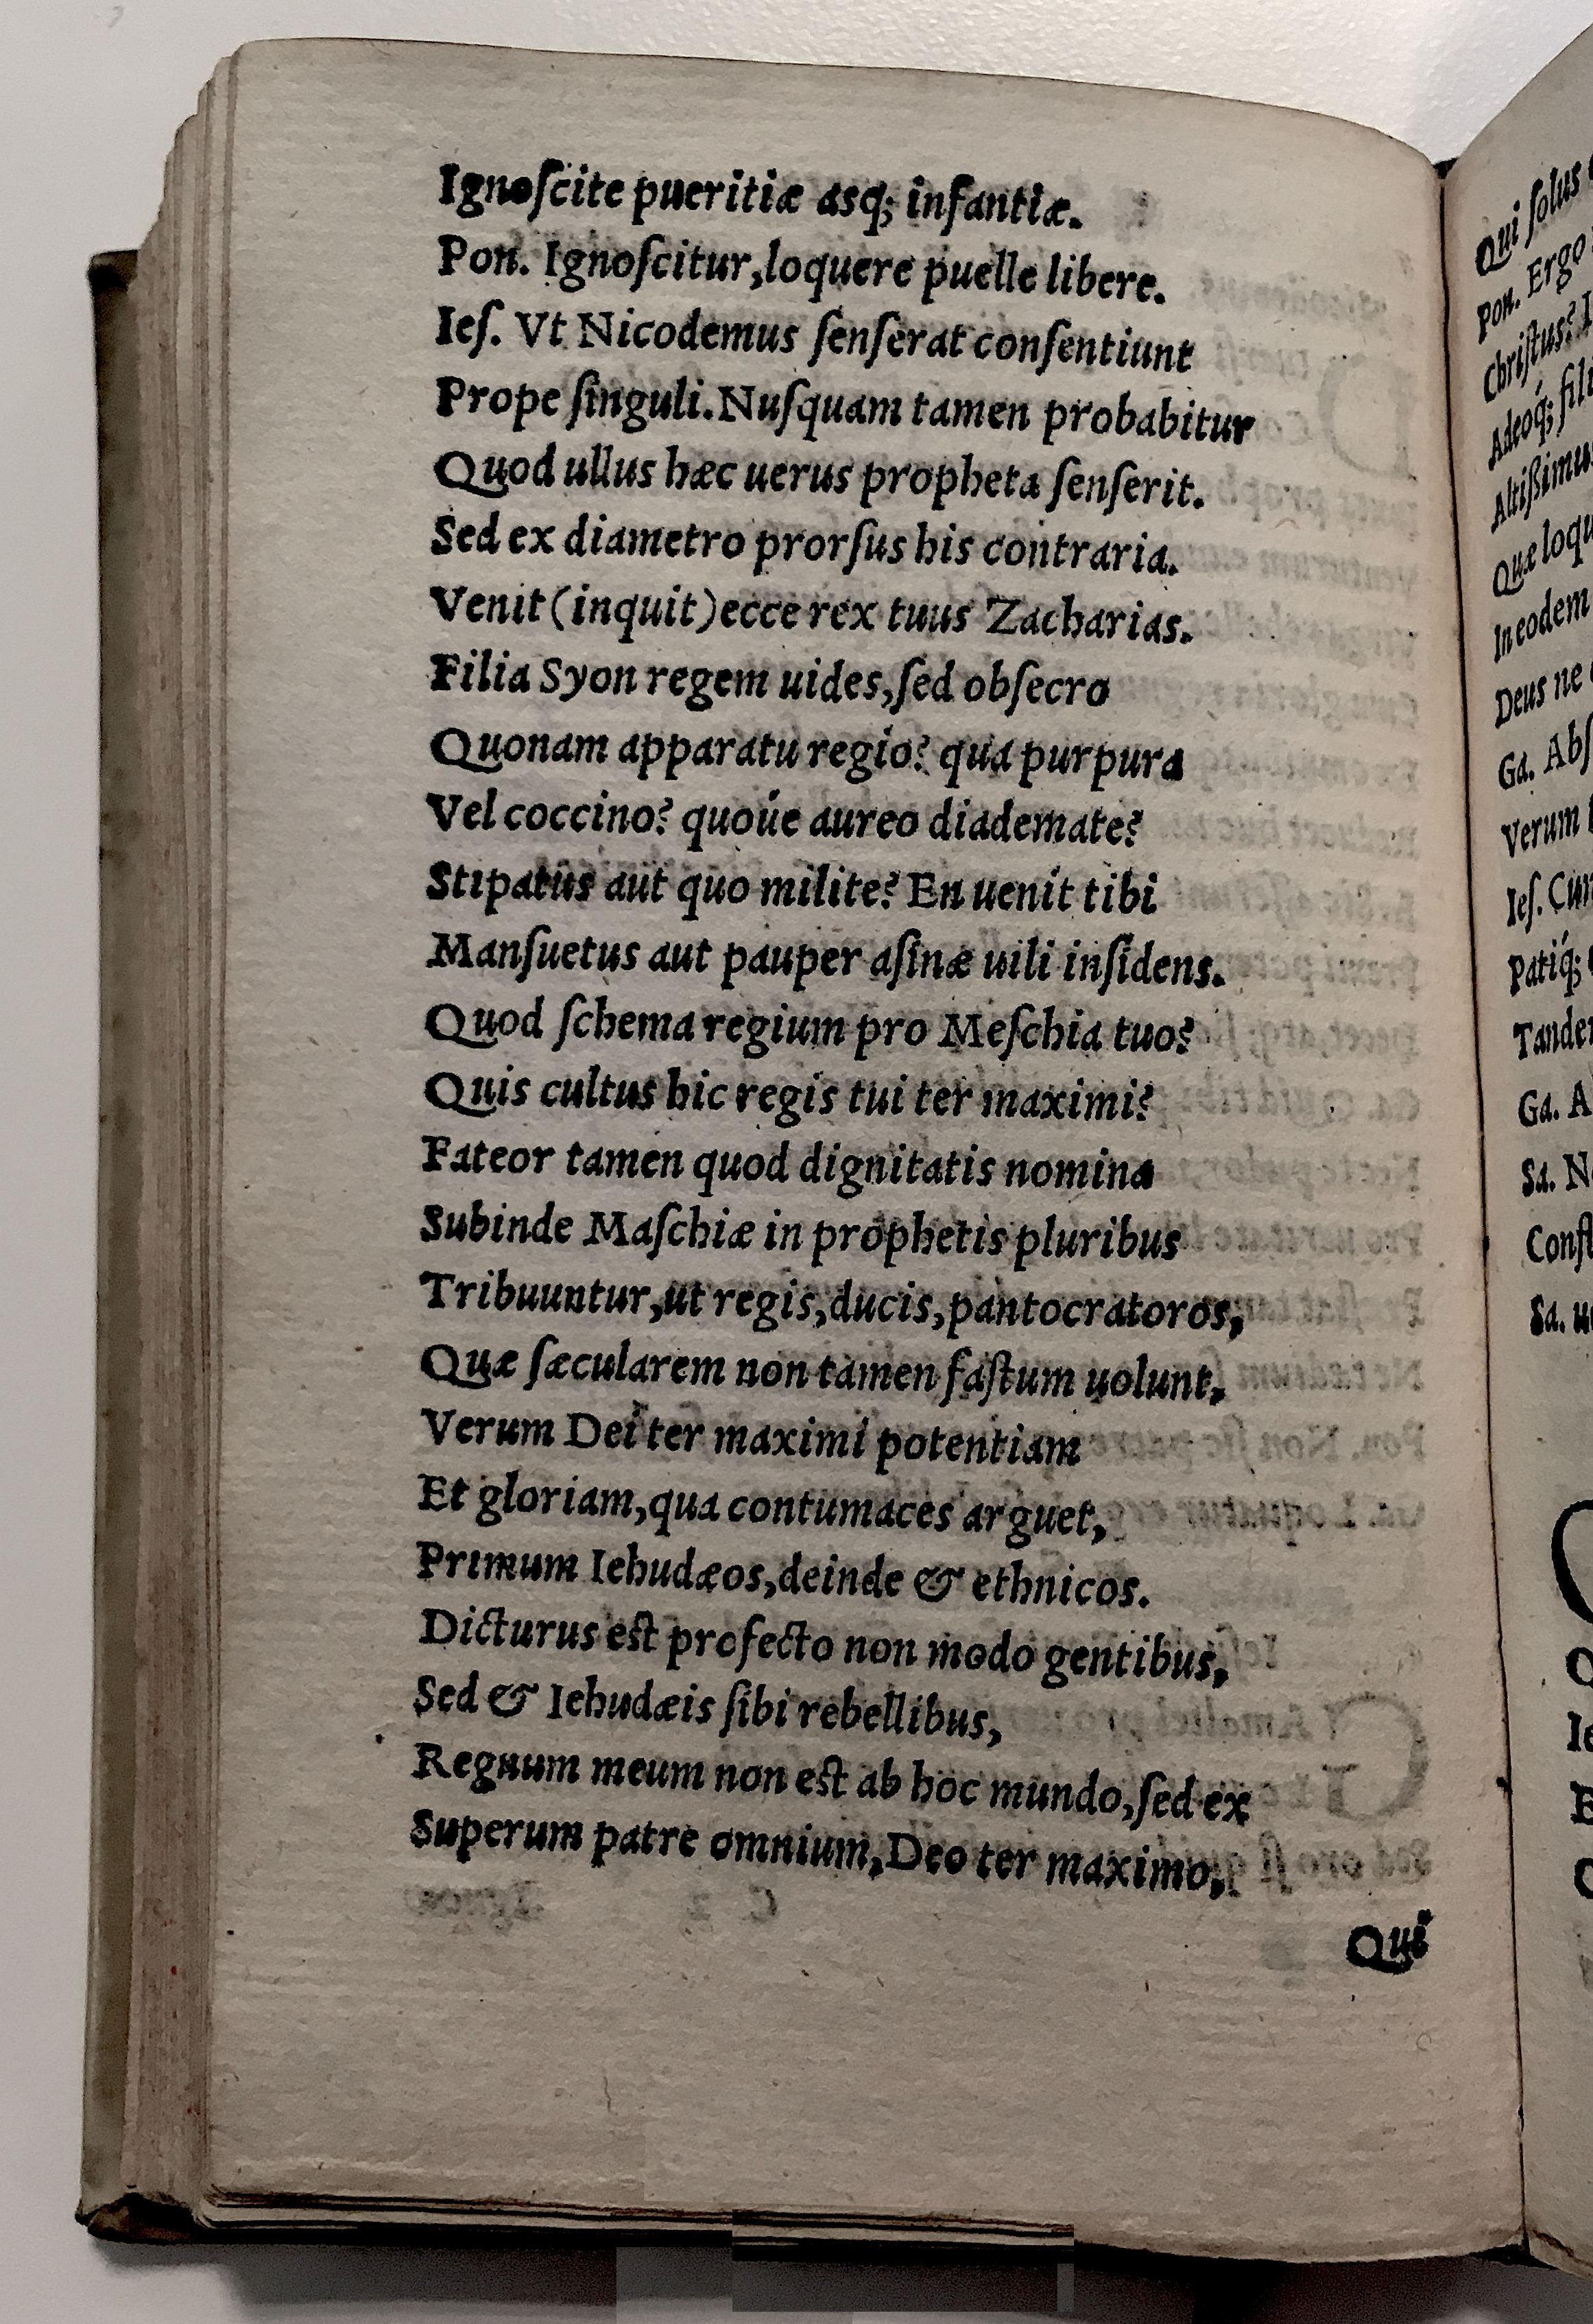 Ignoſcite pueritiæ asq; infantiæ.
Pon. Ignoſcitur,loquere puelle libere.
Ieſ. Vt Nicodemus ſenſerat conſentiunt
Prope ſinguli.Nuſquam tamen probabitur
Quod ullus hæc uerus propheta ſenſerit.
Sed ex diametro prorſus his contraria.
Venit(inquit)ecce rex tuus Zacharias.
Filia Syon regem uides,ſed obſecro
Quonam apparatu regio? qua purpura
Vel coccino? quoúe aureo diademate?
Stipatus aut quo milite? En uenit tibi
Manſuetus aut pauper aſinæ uili inſidens.
Quod ſchema regium pro Meſchia tuo?
Quis cultus hic regis tui ter maximi?
Fateor tamen quod dignitatis nomina
Subinde Maſchiæ in prophetis pluribus
Tribuuntur,ut regis,ducis,pantocratoros,
Quæ ſæcularem non tamen faſtum uolunt,
Verum Dei ter maximi potentiam
Et gloriam,qua contumaces arguet,
Primum Iehudæos,deinde & ethnicos.
Dicturus eſt profecto non modo gentibus,
Sed & Iehudæis ſibi rebellibus,
Regnum meum non eſt ab hoc mundo,ſed ex
Superum patre omnium,Deo ter maximo,
Qui
Qui ſolus
Pon. Ergo
Chriſtus?
Adeoq́;
Altißimus
Quæ
In eodem
Deus ne
Ga.
Verum
Ieſ.
Patiq́;
Ga.
Sa.
Sa.